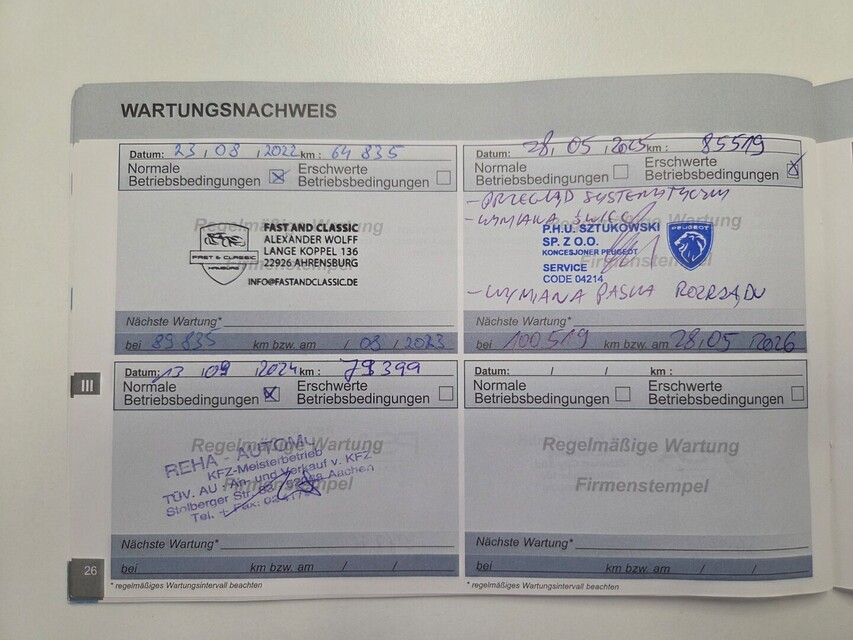 WARTUNGSNACHWEIS
Datum: 23 / 08 / 2022 km : 64 835
Normale Betriebsbedingungen ☒ Erschwerte Betriebsbedingungen ☐
Regelmäßige Wartung
Firmenstempel
FAST & CLASSIC
HAMBURG
FAST AND CLASSIC
ALEXANDER WOLFF
LANGE KOPPEL 136
22926 AHRENSBURG
INFO@FASTANDCLASSIC.DE
Nächste Wartung*
bei 89 835 km bzw. am / 08 / 2023
Datum: 28, 05 / 2025 km : 85519
Normale Betriebsbedingungen ☐ Erschwerte Betriebsbedingungen ☒
- PRZEGLĄD SYSTEMATYCZNY
- WYMIANA ŚWIEC
Regelmäßige Wartung
Firmenstempel
P.H.U. SZTUKOWSKI
SP. Z O.O.
KONCESJONER PEUGEOT
SERVICE
CODE 04214
PEUGEOT
- WYMIANA PASKA ROZRZĄDU
Nächste Wartung*
bei 100 519 km bzw. am 28,05 / 2026
III
Datum: 13 / 09 / 2024 km :
Normale Betriebsbedingungen ☒ Erschwerte Betriebsbedingungen ☐
Regelmäßige Wartung
Firmenstempel
REHA - AUTOM
KFZ-Meisterbetrieb
TÜV. AU - An- und Verkauf v. KFZ
Stolberger Str. Aachen
Tel. + Fax:
Nächste Wartung*
bei km bzw. am / /
* regelmäßiges Wartungsintervall beachten
Datum: / / km :
Normale Betriebsbedingungen ☐ Erschwerte Betriebsbedingungen ☐
Regelmäßige Wartung
Firmenstempel
Nächste Wartung*
bei km bzw. am / /
* regelmäßiges Wartungsintervall beachten
26